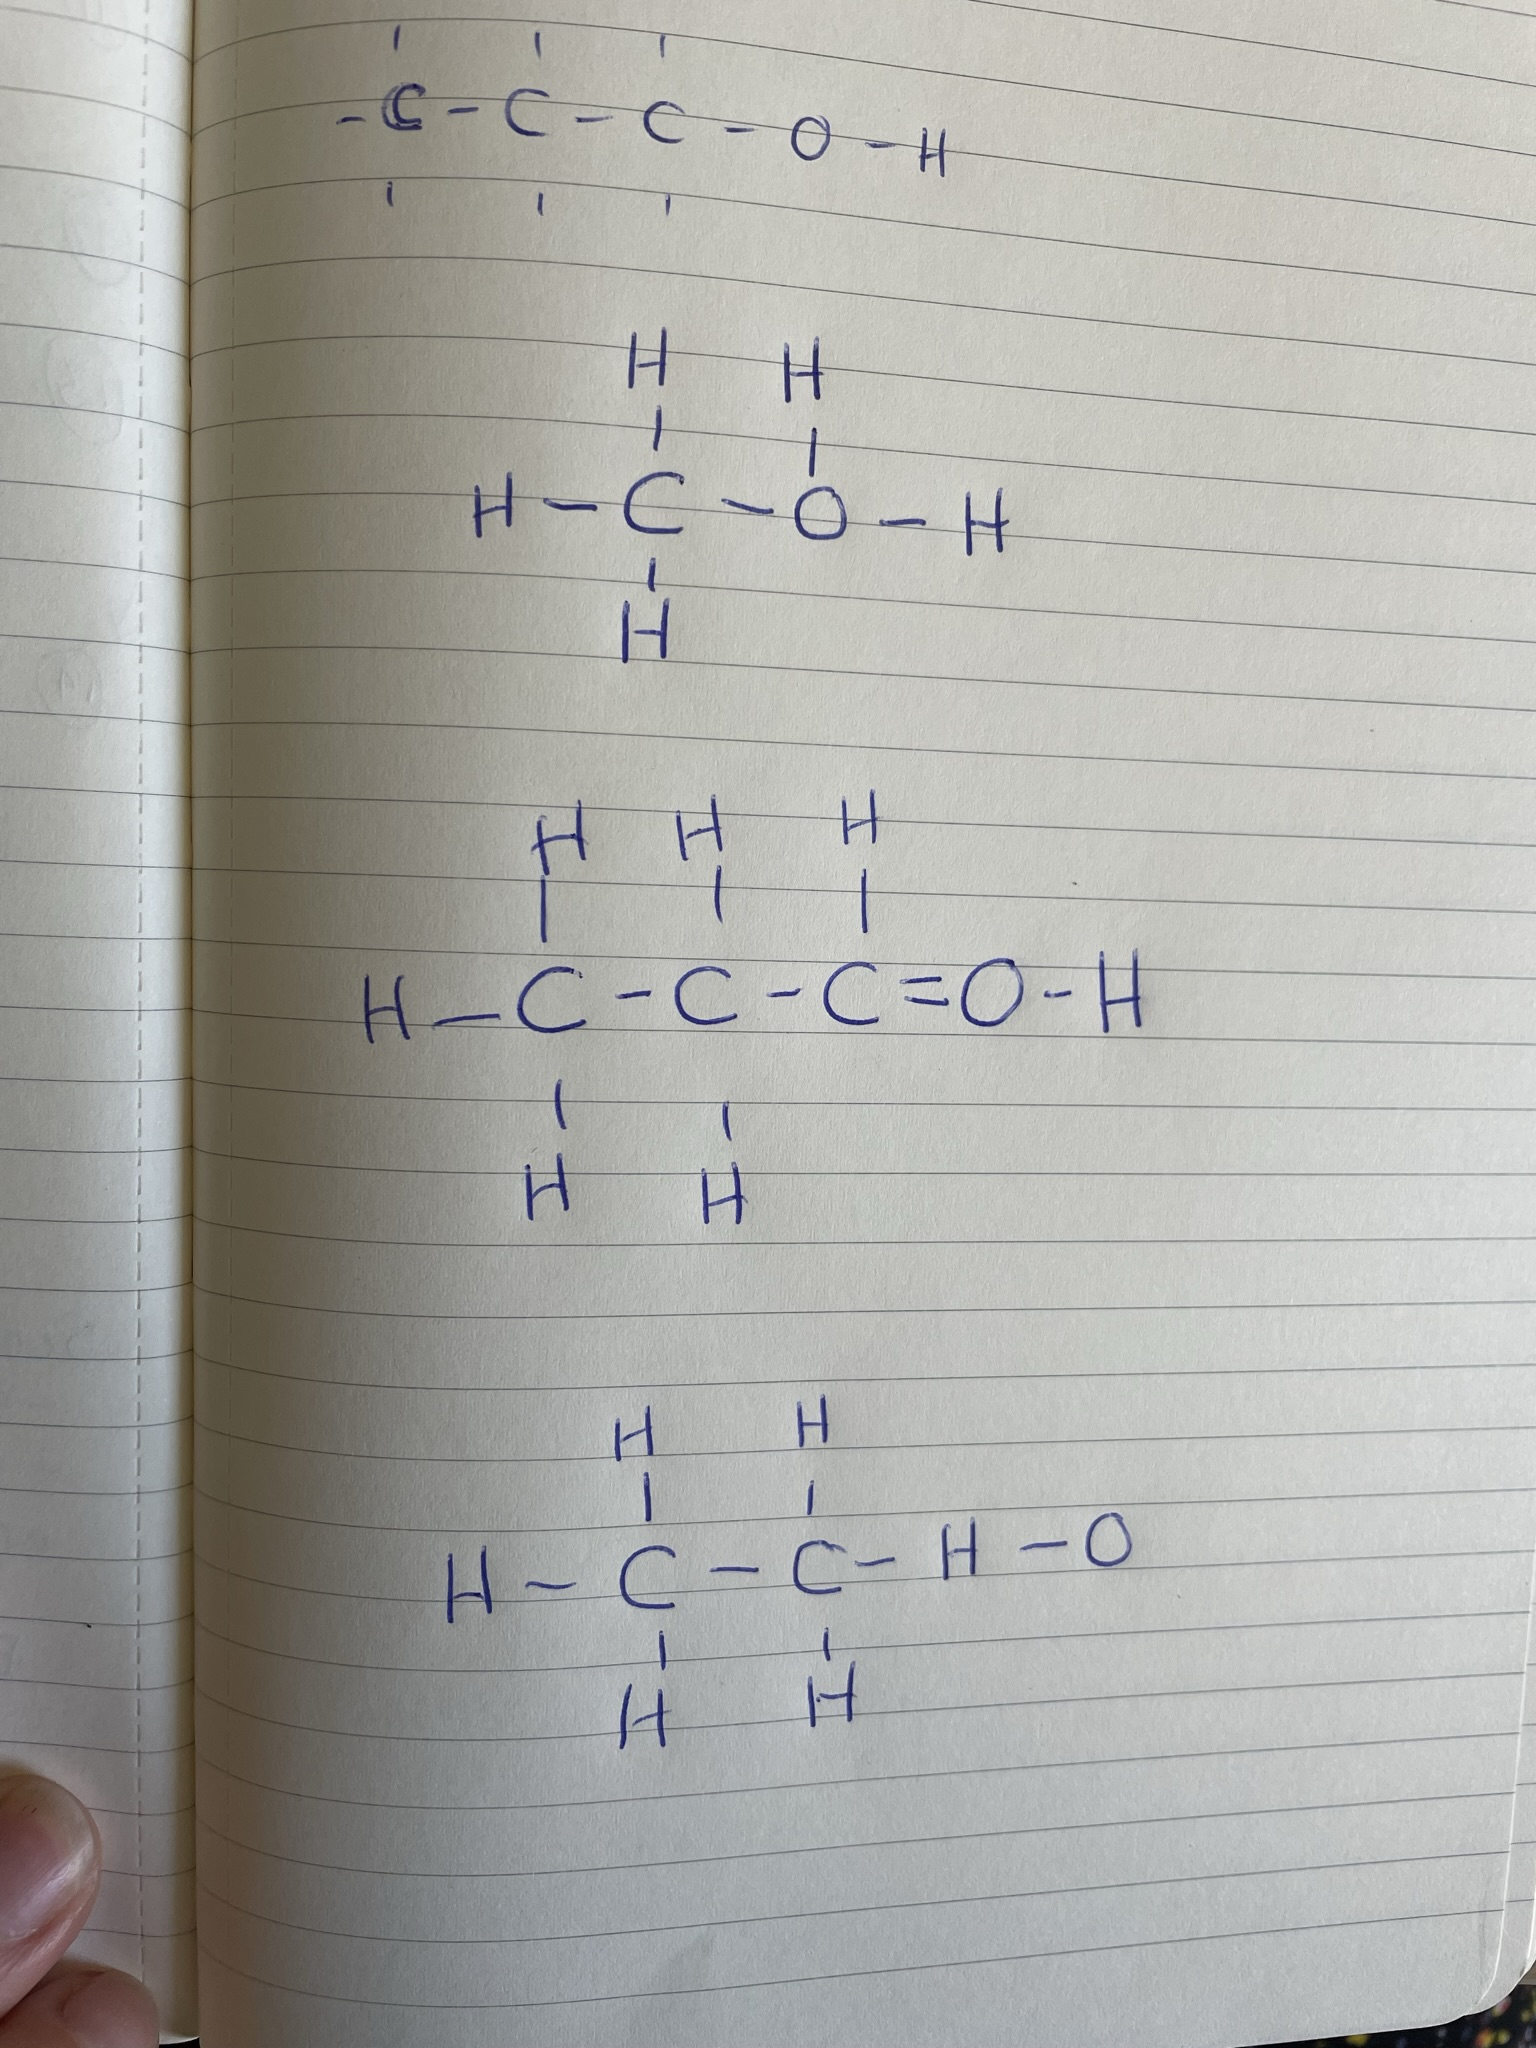 - C - C - C - O - H
H H
H - C - O - H
H
H H H
H - C - C - C = O - H
H H
H H
H - C - C - H - O
H H